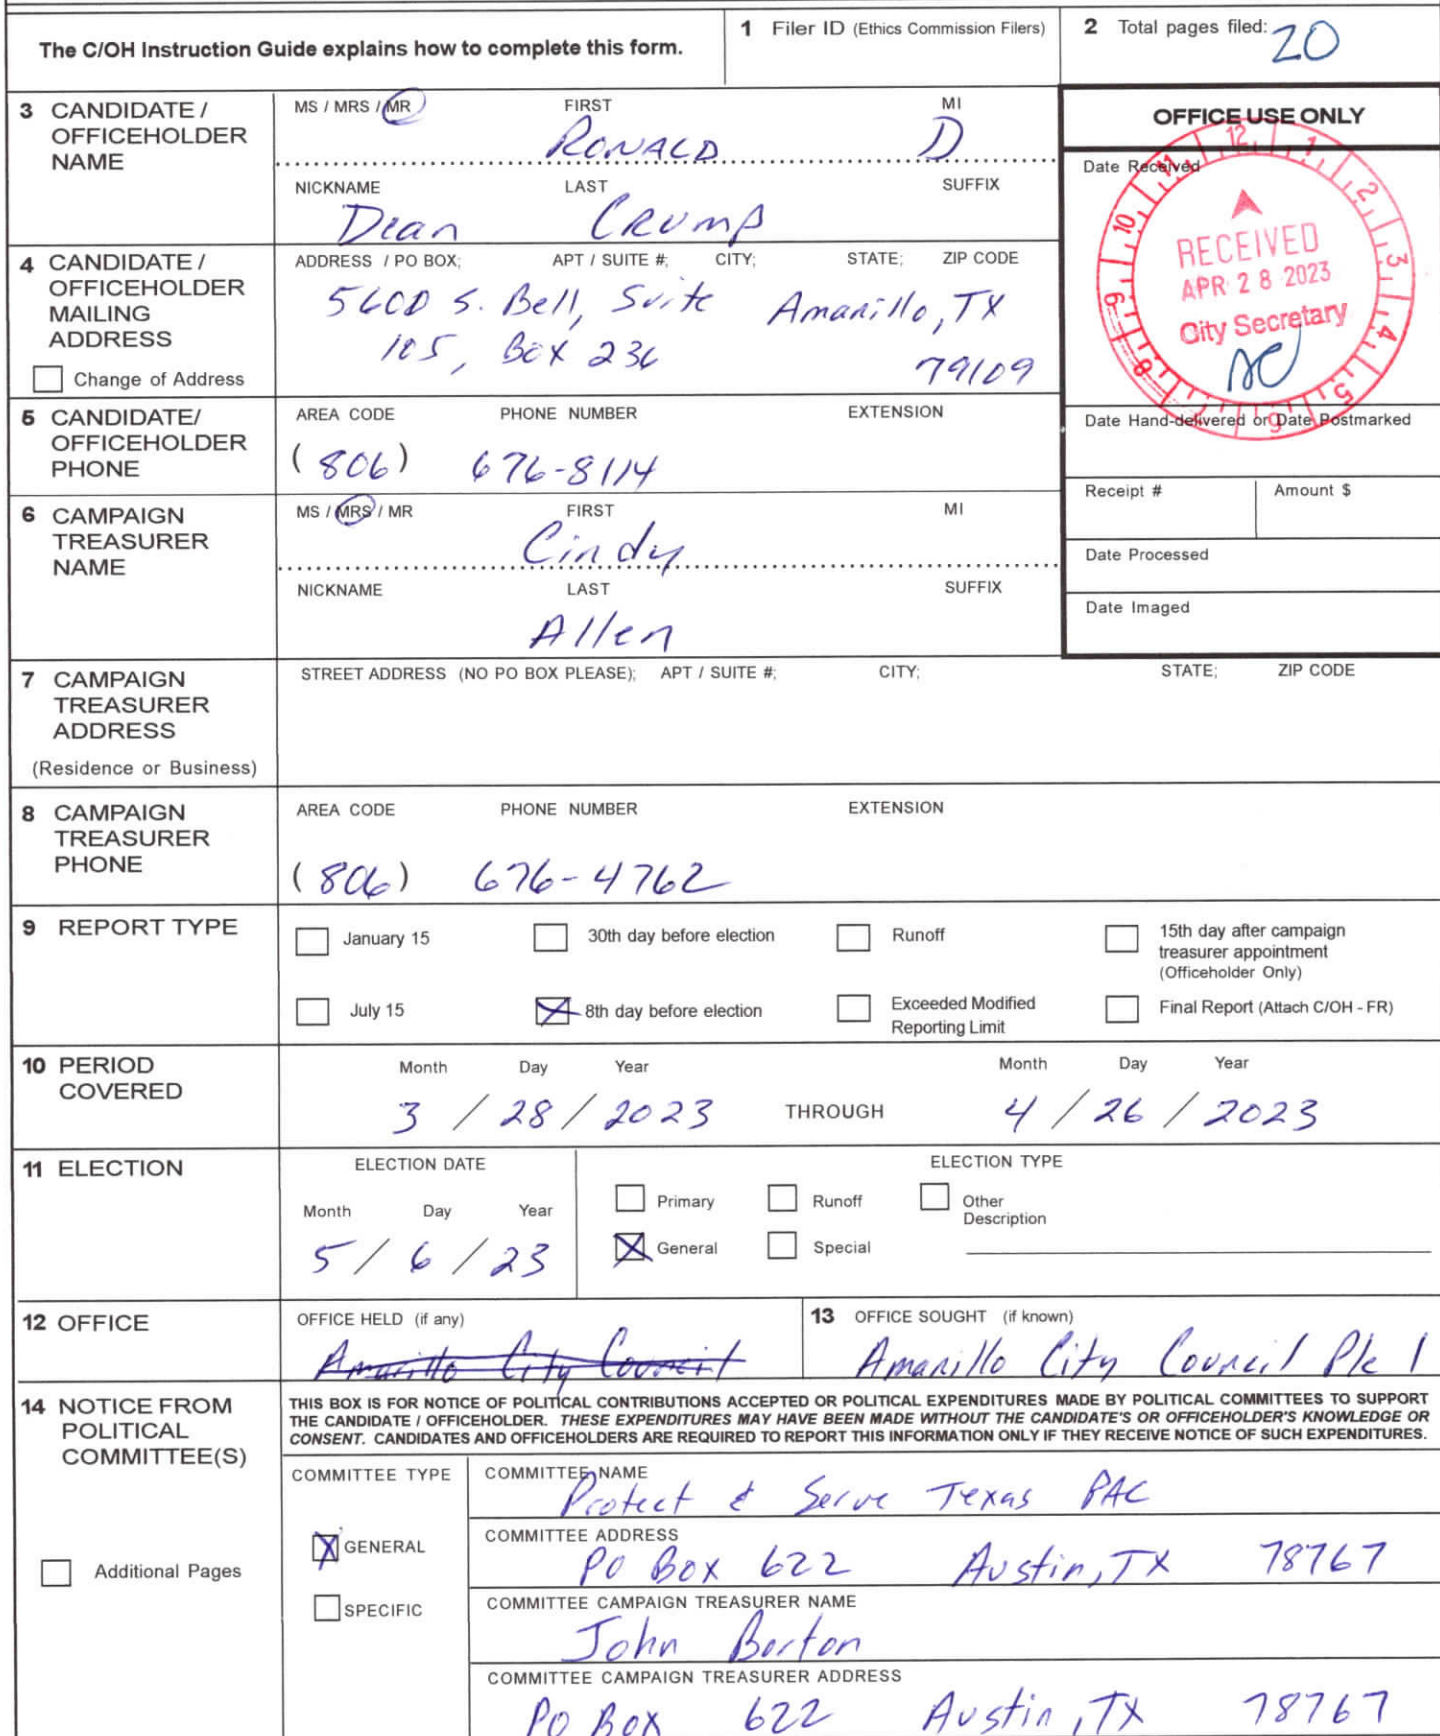 The C/OH Instruction Guide explains how to complete this form.
1 Filer ID (Ethics Commission Filers)
2 Total pages filed: 20
3 CANDIDATE / OFFICEHOLDER NAME
MS / MRS / MR FIRST MI
RONALD D
NICKNAME LAST SUFFIX
Dean Crump
OFFICE USE ONLY
Date Received
12 1 2 3 4 5 6 7 8 9 10 11
RECEIVED
APR 28 2023
City Secretary
Date Hand-delivered or Date Postmarked
Receipt # Amount $
Date Processed
Date Imaged
4 CANDIDATE / OFFICEHOLDER MAILING ADDRESS
Change of Address
ADDRESS / PO BOX; APT / SUITE #; CITY; STATE; ZIP CODE
5600 S. Bell, Suite Amarillo, TX
105, Box 236 79109
5 CANDIDATE/ OFFICEHOLDER PHONE
AREA CODE PHONE NUMBER EXTENSION
(806) 676-8114
6 CAMPAIGN TREASURER NAME
MS / MRS / MR FIRST MI
Cindy
NICKNAME LAST SUFFIX
Allen
7 CAMPAIGN TREASURER ADDRESS
(Residence or Business)
STREET ADDRESS (NO PO BOX PLEASE); APT / SUITE #; CITY; STATE; ZIP CODE
8 CAMPAIGN TREASURER PHONE
AREA CODE PHONE NUMBER EXTENSION
(806) 676-4762
9 REPORT TYPE
January 15 30th day before election Runoff 15th day after campaign treasurer appointment (Officeholder Only)
July 15 8th day before election Exceeded Modified Reporting Limit Final Report (Attach C/OH - FR)
10 PERIOD COVERED
Month Day Year Month Day Year
3 / 28 / 2023 THROUGH 4 / 26 / 2023
11 ELECTION
ELECTION DATE
Month Day Year
5 / 6 / 23
ELECTION TYPE
Primary Runoff Other Description
General Special
12 OFFICE
OFFICE HELD (if any)
Amarillo City Council
13 OFFICE SOUGHT (if known)
Amarillo City Council Plc 1
14 NOTICE FROM POLITICAL COMMITTEE(S)
Additional Pages
THIS BOX IS FOR NOTICE OF POLITICAL CONTRIBUTIONS ACCEPTED OR POLITICAL EXPENDITURES MADE BY POLITICAL COMMITTEES TO SUPPORT
THE CANDIDATE / OFFICEHOLDER. THESE EXPENDITURES MAY HAVE BEEN MADE WITHOUT THE CANDIDATE'S OR OFFICEHOLDER'S KNOWLEDGE OR
CONSENT. CANDIDATES AND OFFICEHOLDERS ARE REQUIRED TO REPORT THIS INFORMATION ONLY IF THEY RECEIVE NOTICE OF SUCH EXPENDITURES.
COMMITTEE TYPE
GENERAL
SPECIFIC
COMMITTEE NAME
Protect & Serve Texas PAC
COMMITTEE ADDRESS
PO Box 622 Austin, TX 78767
COMMITTEE CAMPAIGN TREASURER NAME
John Borton
COMMITTEE CAMPAIGN TREASURER ADDRESS
PO Box 622 Austin, TX 78767